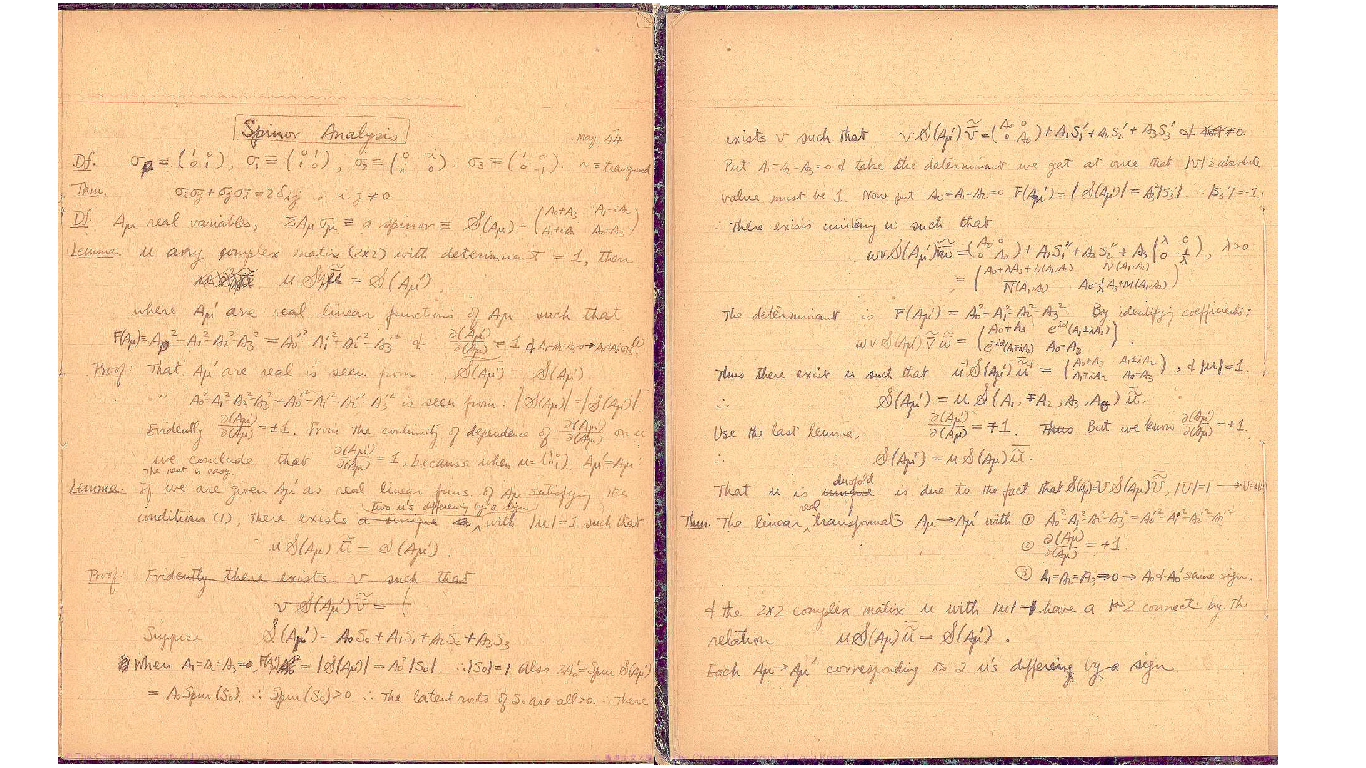 Spinor Analysis
May 44
Df. σ₀ = (1 0; 0 1), σ₁ = (0 1; 1 0), σ₂ = σ₃ = (1 0; 0 -1).
Then σᵢσⱼ + σⱼσᵢ = 2δᵢⱼ i, j ≠ 0
Df Aμ real variables, ΣAμσμ ≡ a spinor ≡ S(Aμ) = (A₀+A₃ A₁-iA₂; A₁+iA₂ A₀-A₃)
Lemma. u any complex matix (2x2) with determinant = 1, then
u S(Aμ) ũ = S(Aμ'),
where Aμ' are real linear functions of Aμ such that
F(Aμ) = A₀² - A₁² - A₂² - A₃² = A₀'² - A₁'² - A₂'² - A₃'² & ∂(Aμ')/∂(Aμ) = 1
Proof: That Aμ' are real is seen from S(Aμ') S(Aμ')
" A₀²-A₁²-A₂²-A₃² = A₀'²-A₁'²-A₂'²-A₃'² is seen from: |S(Aμ)| = |S(Aμ')|
Evidently ∂(Aμ')/∂(Aμ) = ±1. From the continuity of dependence of ∂(Aμ')/∂(Aμ) on u
we conclude that ∂(Aμ')/∂(Aμ) = 1, because when u = (1 0; 0 1), Aμ' = Aμ
The rest is easy.
Lemma. If we are given Aμ' as real linear funs. of Aμ satisfying the
two u's differing by a sign
conditions (1), there exists a unique with |u| = 1 such that
u S(Aμ) ũ = S(Aμ').
Proof: Evidently there exists v such that
v S(Aμ') ṽ =
Suppose S(Aμ') = A₀S₀ + A₁S₁ + A₂S₂ + A₃S₃
When A₁=A₂=A₃=0 = |S(Aμ')| = A₀²|S₀| ∴ |S₀|=1 Also 2A₀' = Spur S(Aμ')
= A₀ Spur (S₀). ∴ Spur (S₀) > 0 ∴ The latent roots of S₀ are all >0. ∴ There
exists v such that v S(Aμ') ṽ = (A₀ 0; 0 A₀) + A₁S₁' + A₂S₂' + A₃S₃'
Put A₁=A₂=A₃=0 & take the determinant we get at once that |v|'s absolute
value must be 1. Now put A₀=A₁=A₂=0 F(Aμ') = |S(Aμ')| = A₃²|S₃'| ∴ |S₃'| = -1.
∴ There exists unitary w such that
wv S(Aμ') ṽw̃ = (A₀ 0; 0 A₀) + A₁S₁'' + A₂S₂'' + A₃(λ 0; 0 ), λ>0
The determinant is F(Aμ') = A₀²-A₁²-A₂²-A₃². By identifying coefficients:
wv S(Aμ') ṽ w̃ =
Thus there exist u such that u' S(Aμ') ũ' = , & |u'| = 1.
∴ S(Aμ') = u S(A₁, ∓A₂, A₃, A₀) ũ.
Use the last lemma, ∂(Aμ')/∂(Aμ) = ∓1. But we know ∂(Aμ')/∂(Aμ) = +1.
∴ S(Aμ') = u S(Aμ) ũ.
twofold
That u is unique is due to the fact that S(Aμ) = v S(Aμ) ṽ, |v|=1
real
Then. The linear transformats Aμ → Aμ' with ① A₀²-A₁²-A₂²-A₃² = A₀'²-A₁'²-A₂'²-A₃'²
② ∂(Aμ')/∂(Aμ) = +1
③ A₁=A₂=A₃=0 → A₀ & A₀' same sign.
& the 2x2 complex matix u with |u|=1 have a 1-2 connect. by the
relation u S(Aμ) ũ = S(Aμ').
Each Aμ → Aμ' corresponding to 2 u's differing by a sign